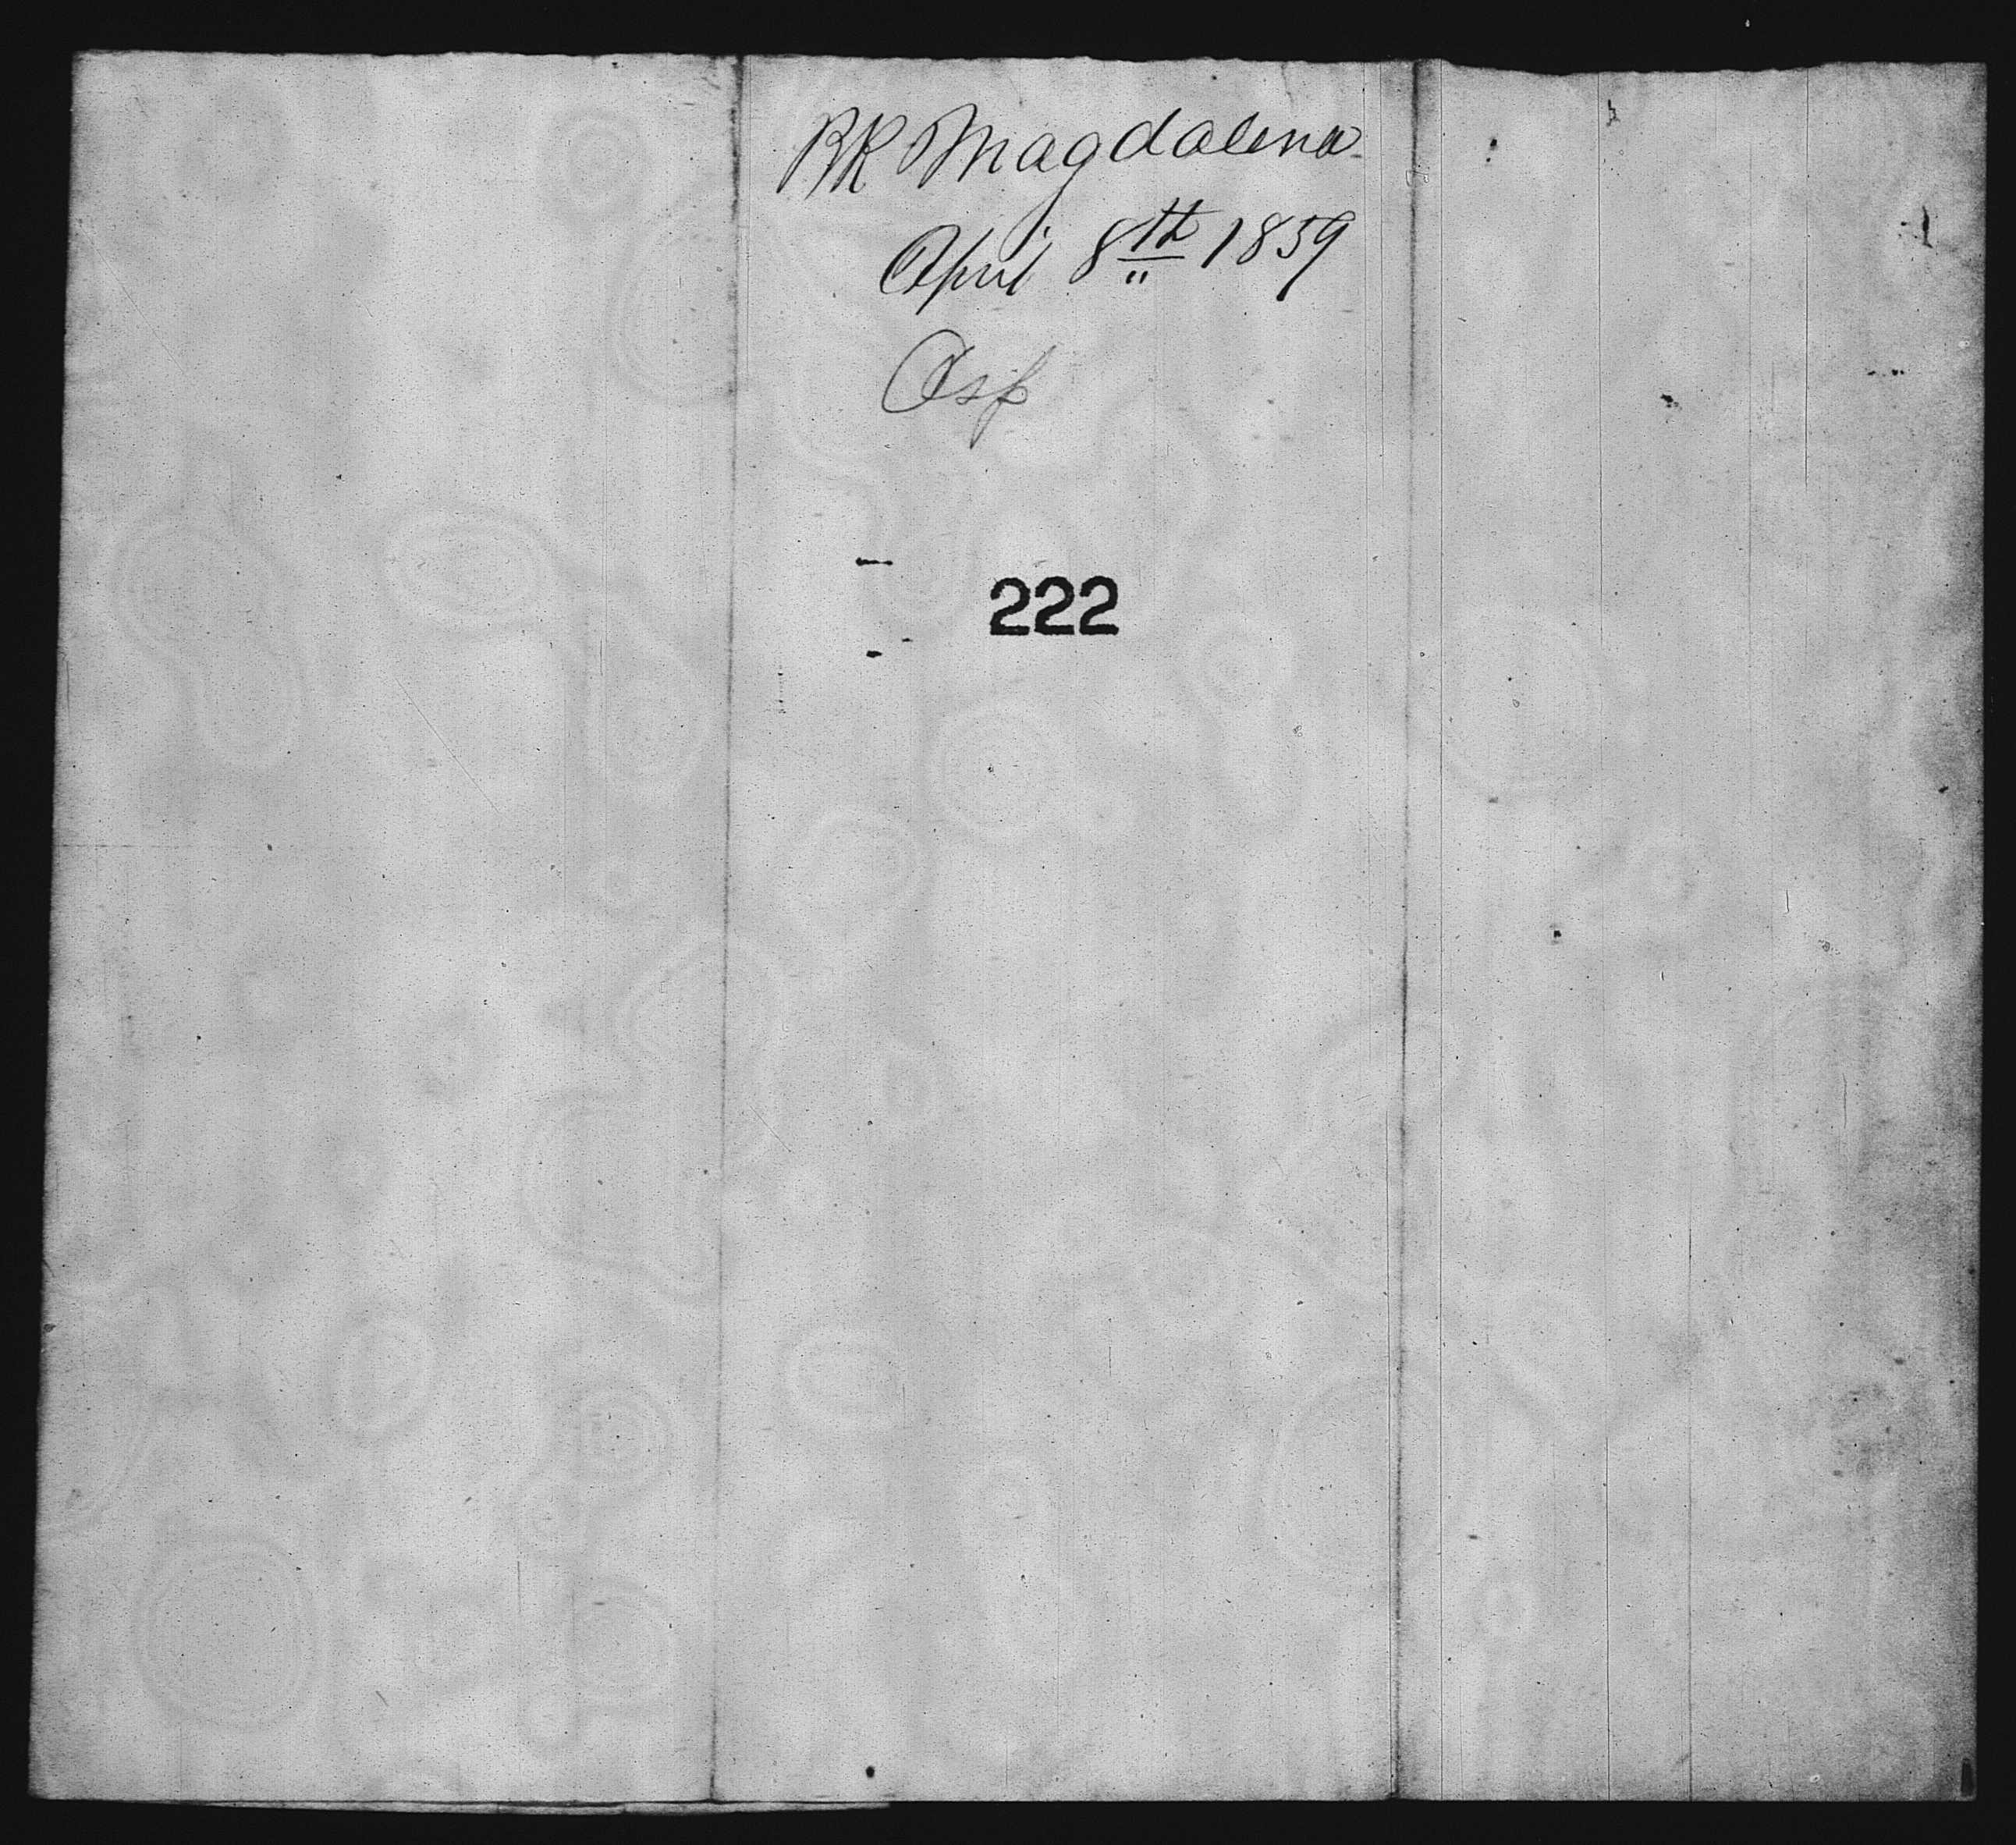 BK Magdalena
April 8th 1859
Asp
222